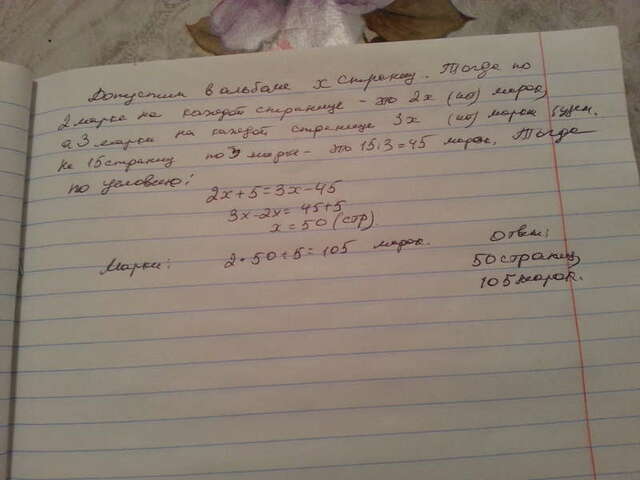 Допустим в альбоме x страниц. Тогда по
2 марке на каждой странице - это 2x (шт) марок,
а 3 марки на каждой странице 3x (шт) марок будем.
На 15 страниц по 3 марки - это 15·3=45 марок. Тогда
по условию:
2x+5=3x-45
3x-2x=45+5
x=50 (стр)
Марки: 2·50+5=105 марок.
Ответ:
50 страниц,
105 марок.